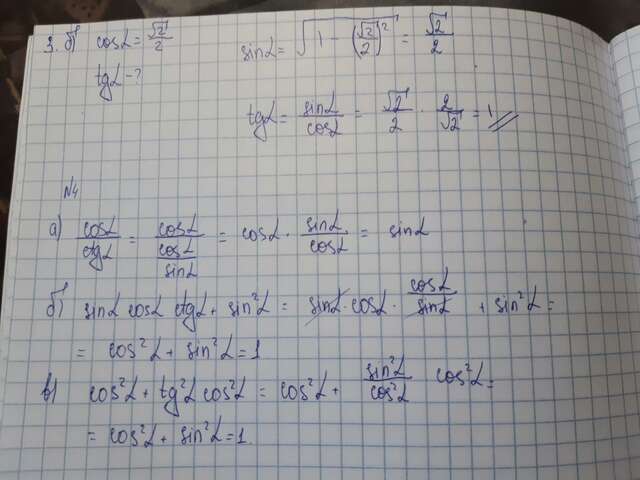 3. б) cosα = √2/2 sinα = √(1 - (√2/2)²) = √2/2
tgα - ?
tgα = sinα/cosα = √2/2 · 2/√2 = 1
№4
а) cosα/ctgα = cosα/(cosα/sinα) = cosα · sinα/cosα = sinα
б) sinα cosα ctgα + sin²α = sinα · cosα · cosα/sinα + sin²α =
= cos²α + sin²α = 1
в) cos²α + tg²α cos²α = cos²α + sin²α/cos²α cos²α =
= cos²α + sin²α = 1.